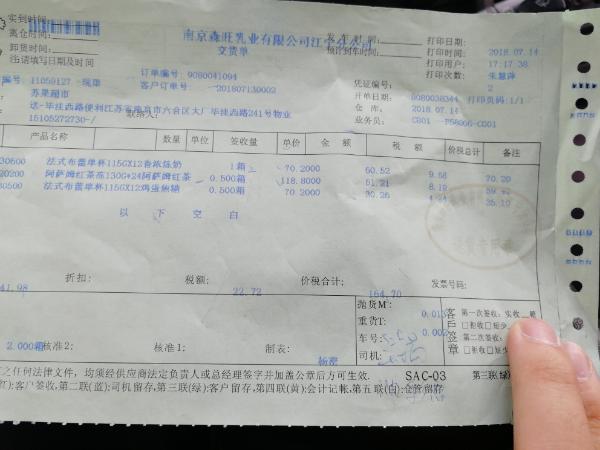 实到时间:
离仓时间:
卸货时间:
请填写日期及时间
南京森旺乳业有限公司江宁分公司
交货单
发车时间:
预计到车时间:
打印日期:
2018.07.14
打印时间:
打印用户: 17:17:38
打印次数: 张慧萍
编号 11059127
订单编号 9080041094
客户订单号 -201807130002
凭证编号
2
苏果超市
开单日期: 8080038344 打印页码:1/1
送-毕洼西路便利江苏省南京市六合区大厂毕洼西路241号物业
仓 库: 2018.07.14
15105272730-/ 联络人:
业务员: CB01
产品名称 数量 单位 签收量 单价 金 额 税 额 价税总计 备注
30500 法式布蕾单杯115GX12香浓炼奶 1箱 70.2000 60.52 9.68 70.20
20200 阿萨姆红茶冻130G*24阿萨姆红茶 0.500箱 118.8000 51.21 8.19
30500 法式布蕾单杯115GX12鸡蛋焦糖 0.500箱 70.2000 30.26 35.10
以 下 空 白
折扣: 税额: 价税合计: 发票号码:
41.98 22.72 164.70
抛货M³: 0.013
重货T: 0.002
车号:
司机:
客户签章
第一次签收: 实收
□拒收□短少
第二次签收:
□拒收□短少
2.000箱 核准2: 核准1: 制表:
SAC-03 第三联(绿)
之任何法律文件，均须经供应商法定负责人或总经理签字并加盖公章后方可生效.
红):客户签收,第二联(蓝):司机留存,第三联(绿):客户留存,第四联(黄):会计记帐,第五联(白):仓管留存